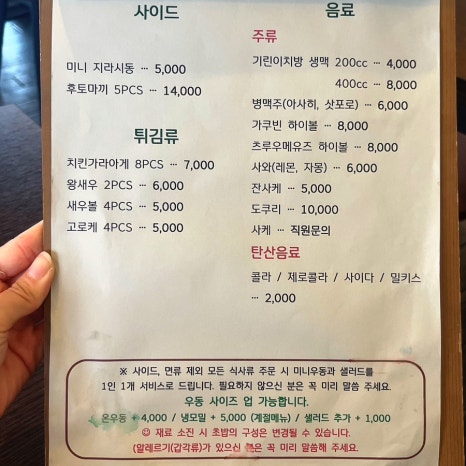 사이드
미니 지라시동 … 5,000
후토마끼 5PCS … 14,000
튀김류
치킨가라아게 8PCS … 7,000
왕새우 2PCS … 6,000
새우볼 4PCS … 5,000
고로케 4PCS … 5,000
음료
주류
기린이치방 생맥 200cc … 4,000
400cc … 8,000
병맥주(아사히, 삿포로) … 6,000
가쿠빈 하이볼 … 8,000
츠루우메유즈 하이볼 … 8,000
사와(레몬, 자몽) … 6,000
잔사케 … 5,000
도쿠리 … 10,000
사케 … 직원문의
탄산음료
콜라 / 제로콜라 / 사이다 / 밀키스
… 2,000
※ 사이드, 면류 제외 모든 식사류 주문 시 미니우동과 샐러드를
1인 1개 서비스로 드립니다. 필요하지 않으신 분은 꼭 미리 말씀 주세요.
우동 사이즈 업 가능합니다.
온우동 + 4,000 / 냉모밀 + 5,000 (계절메뉴) / 샐러드 추가 + 1,000
☺ 재료 소진 시 초밥의 구성은 변경될 수 있습니다.
(알레르기(갑각류)가 있으신 분은 꼭 미리 말씀해 주세요.